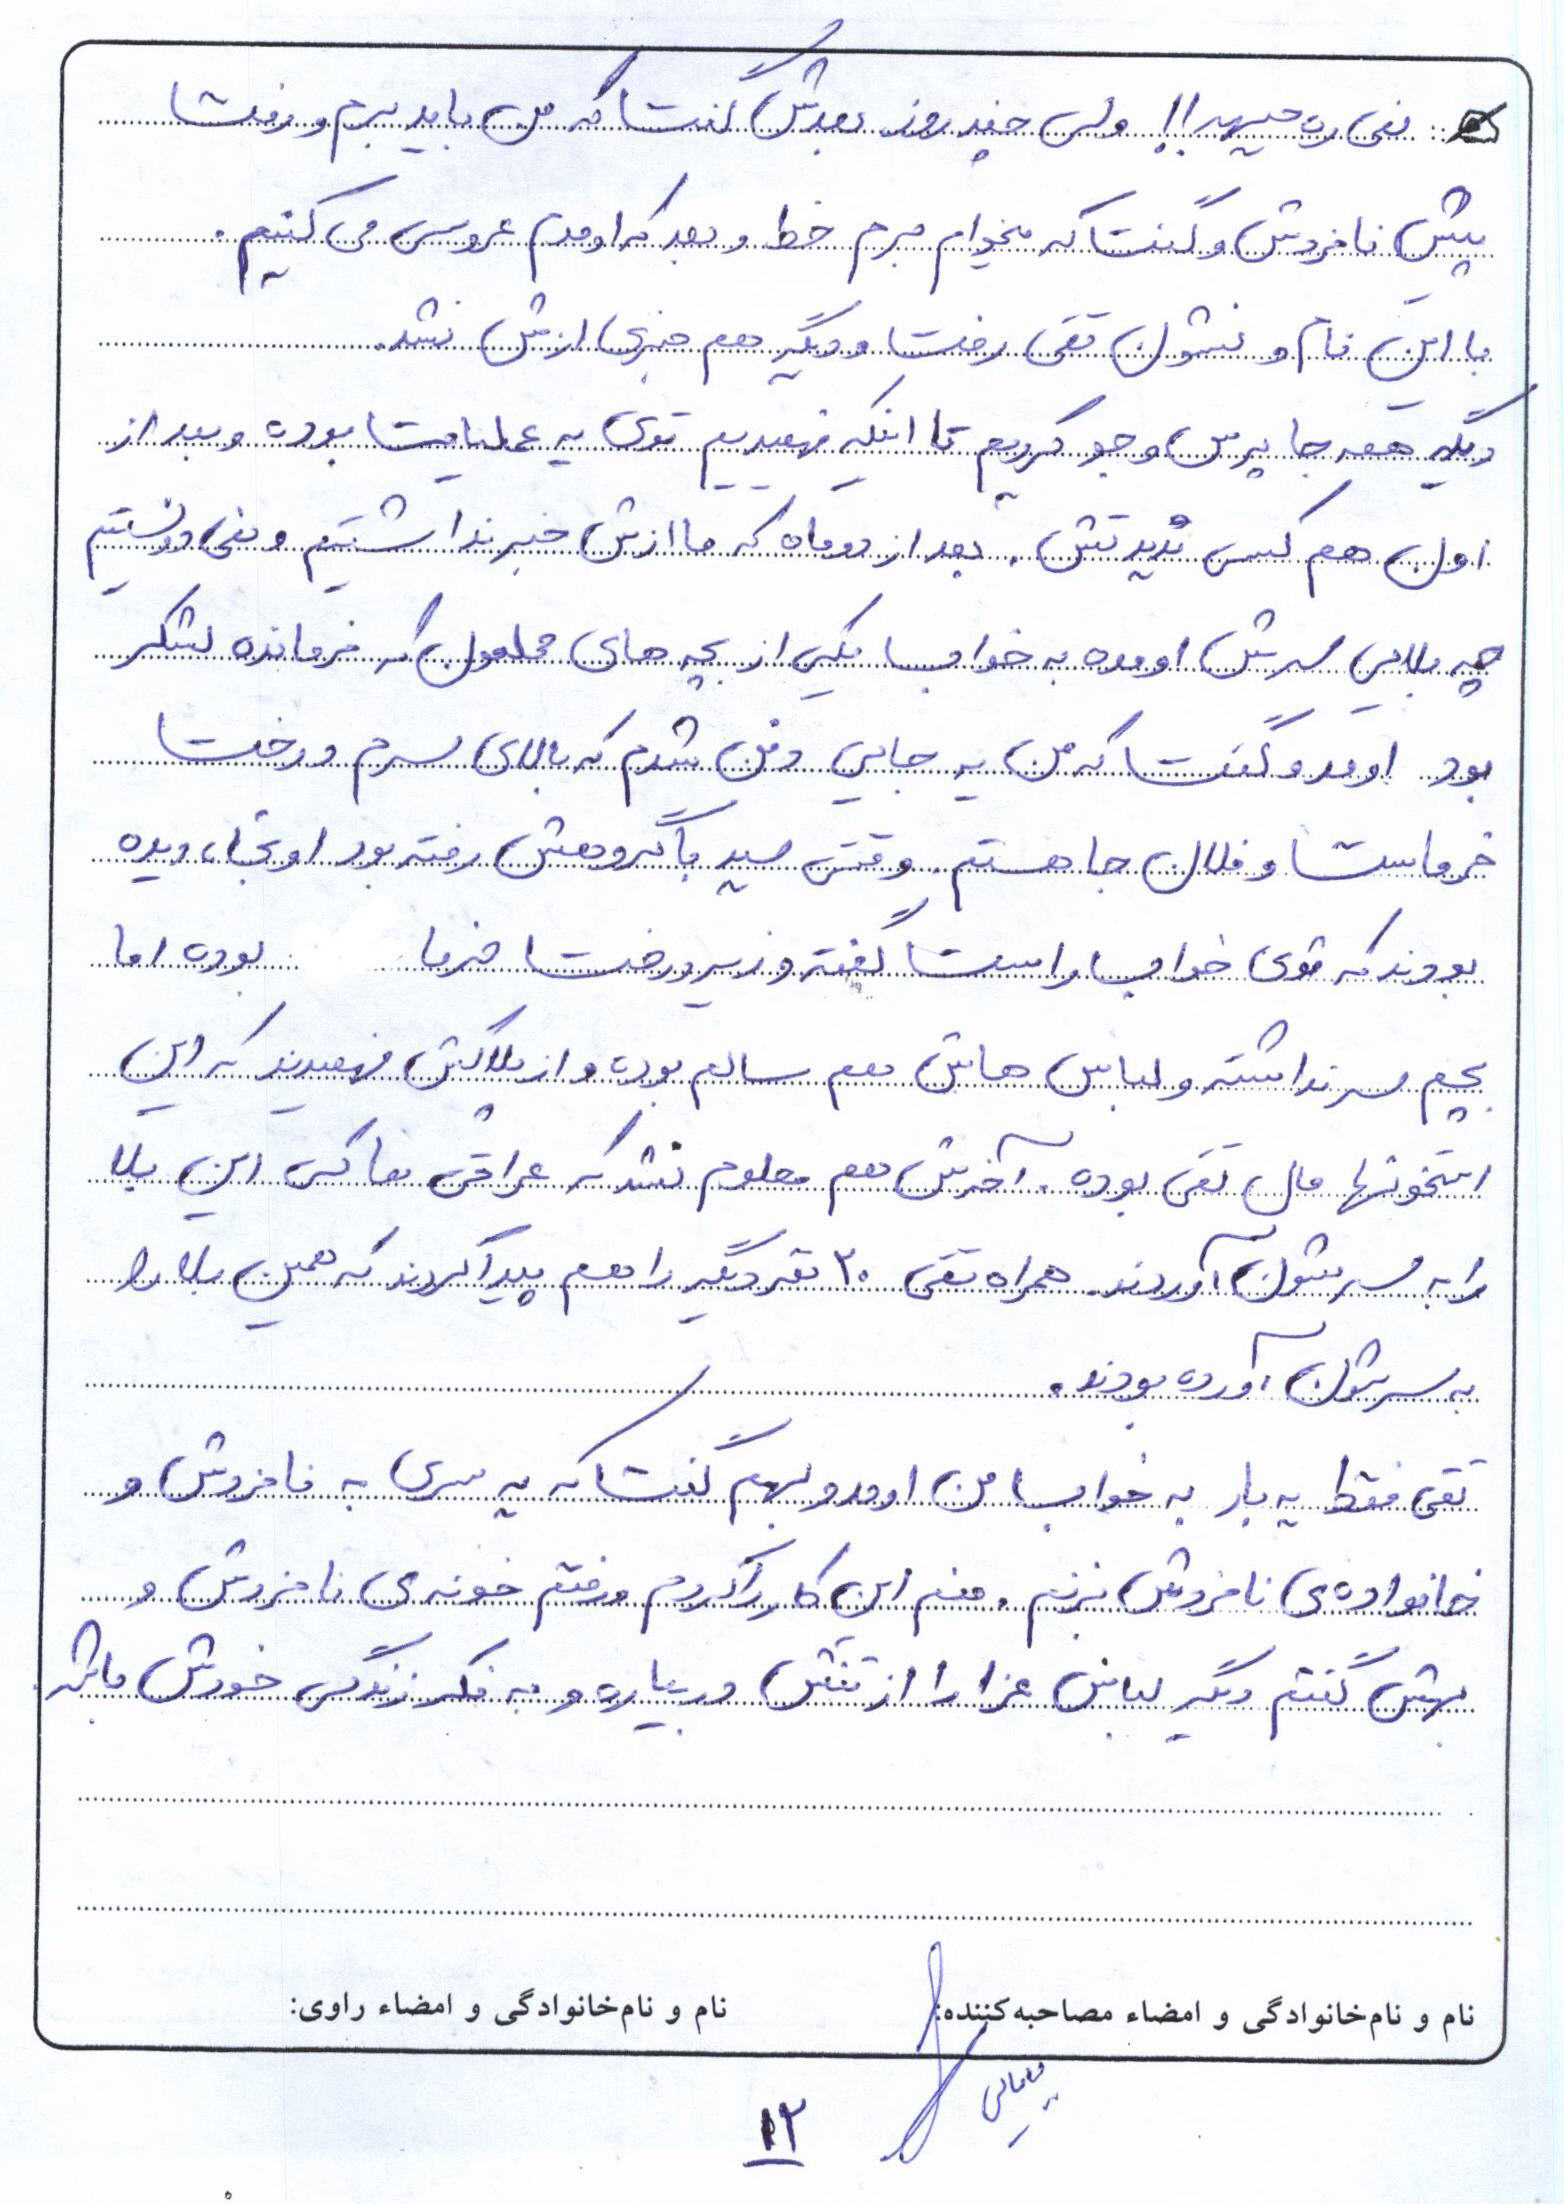 نمی ره جبهه!! ولی چند روز بعدش گفت که من باید برم و رفت
پیش نامزدش و گفت که میخوام برم خط و بعد که اومدم عروسی می کنیم.
با این نام و نشون تقی رفت و دیگه هم خبری ازش نشد.
دیگه همه جا پرس و جو کردیم تا اینکه فهمیدیم توی یه عملیات بوده و بعد از
اون هم کسی ندیدتش. بعد از دو ماه که ما ازش خبر نداشتیم و نمی دونستیم
چه بلایی سرش اومده به خواب یکی از بچه های محلمون که فرمانده لشکر
بود اومد و گفت که من یه جایی دفن شدم که بالای سرم درخت
خرماست و فلان جا هستم. وقتی سید با گروهش رفته بود اونجا، دیده
بودند که توی خواب راست گفته و زیر درخت خرما بوده اما
بچم سر نداشته و لباس هاش هم سالم بوده و از پلاکش فهمیدند که این
استخونها مال تقی بوده. آخرش هم معلوم نشد که عراقی ها کی این بلا
را به سرشون آوردند. همراه تقی ۲۰ نفر دیگه را هم پیدا کردند که همین بلا را
به سرشون آورده بودند.
تقی فقط یه بار به خواب من اومد و بهم گفت که یه سری به نامزدش و
خانواده ی نامزدش بزنم. منم این کار را کردم و رفتم خونه ی نامزدش و
بهش گفتم دیگه لباس عزا را از تنش در بیاره و به فکر زندگی خودش باشه.
نام و نام‌خانوادگی و امضاء مصاحبه‌کننده: نام و نام‌خانوادگی و امضاء راوی:
۱۲